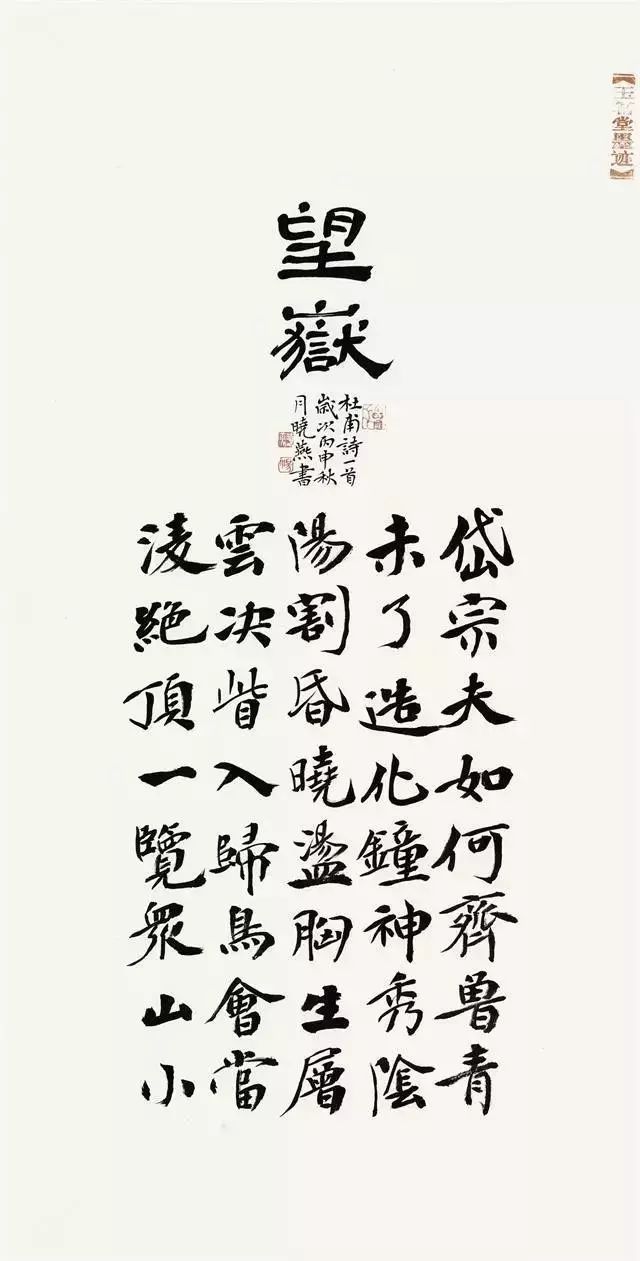 堂墨迹
望嶽
杜甫詩一首
歲次丙申秋
月曉燕書
岱宗夫如何齊魯青
未了造化鐘神秀陰
陽割昏曉盪胸生層
雲决眥入歸鳥會當
淩絶頂一覽眾山小